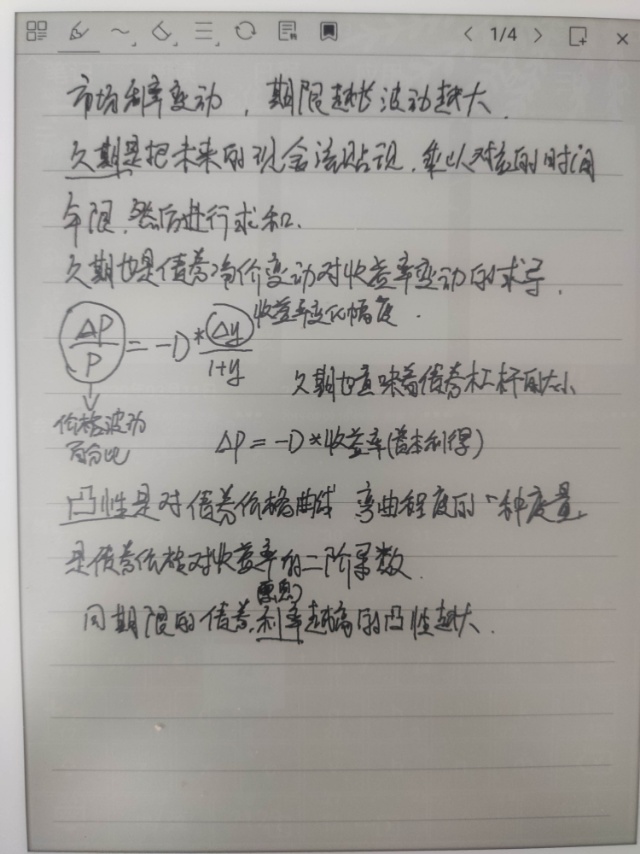 1/4
市场利率变动，期限越长波动越大.
久期是把未来的现金流贴现，乘以对应的时间
年限，然后进行求和.
久期也是债券净价变动对收益率变动的求导.
ΔP/P = -D * Δy/(1+y) 收益率变化幅度.
久期也意味着债券杠杆的大小
价格波动
百分比
ΔP = -D * 收益率(资本利得)
凸性是对债券价格曲线 弯曲程度的一种度量,
是债券价格对收益率的二阶导数.
(票息)
同期限的债券,利率越高的凸性越大.